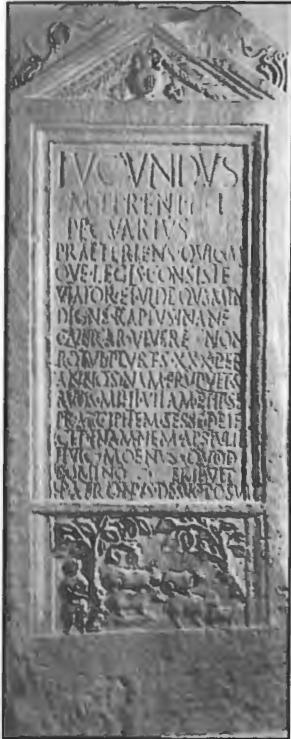 IVCVNDVS
M TERENTI L
PECVARIVS
PRAETERIENS QVICVM
QVE LEGIS CONSISTE
VIATOR ET VIDE QVAM IN
DIGNE RAPTVS INANE
QVERAR VIVERE NON
POTVI PLVRES XXX PER
ANNOS NAM ERVPVIT SER
VOS MIHI VITAM ET IPSE
PRAECIPITEM SESSE DEIE
CIT IN AMNEM APSTVLIT
HVIC MOENVS QVOD
DOMINO ERIPVIT
PATRONVS DE SVO POS